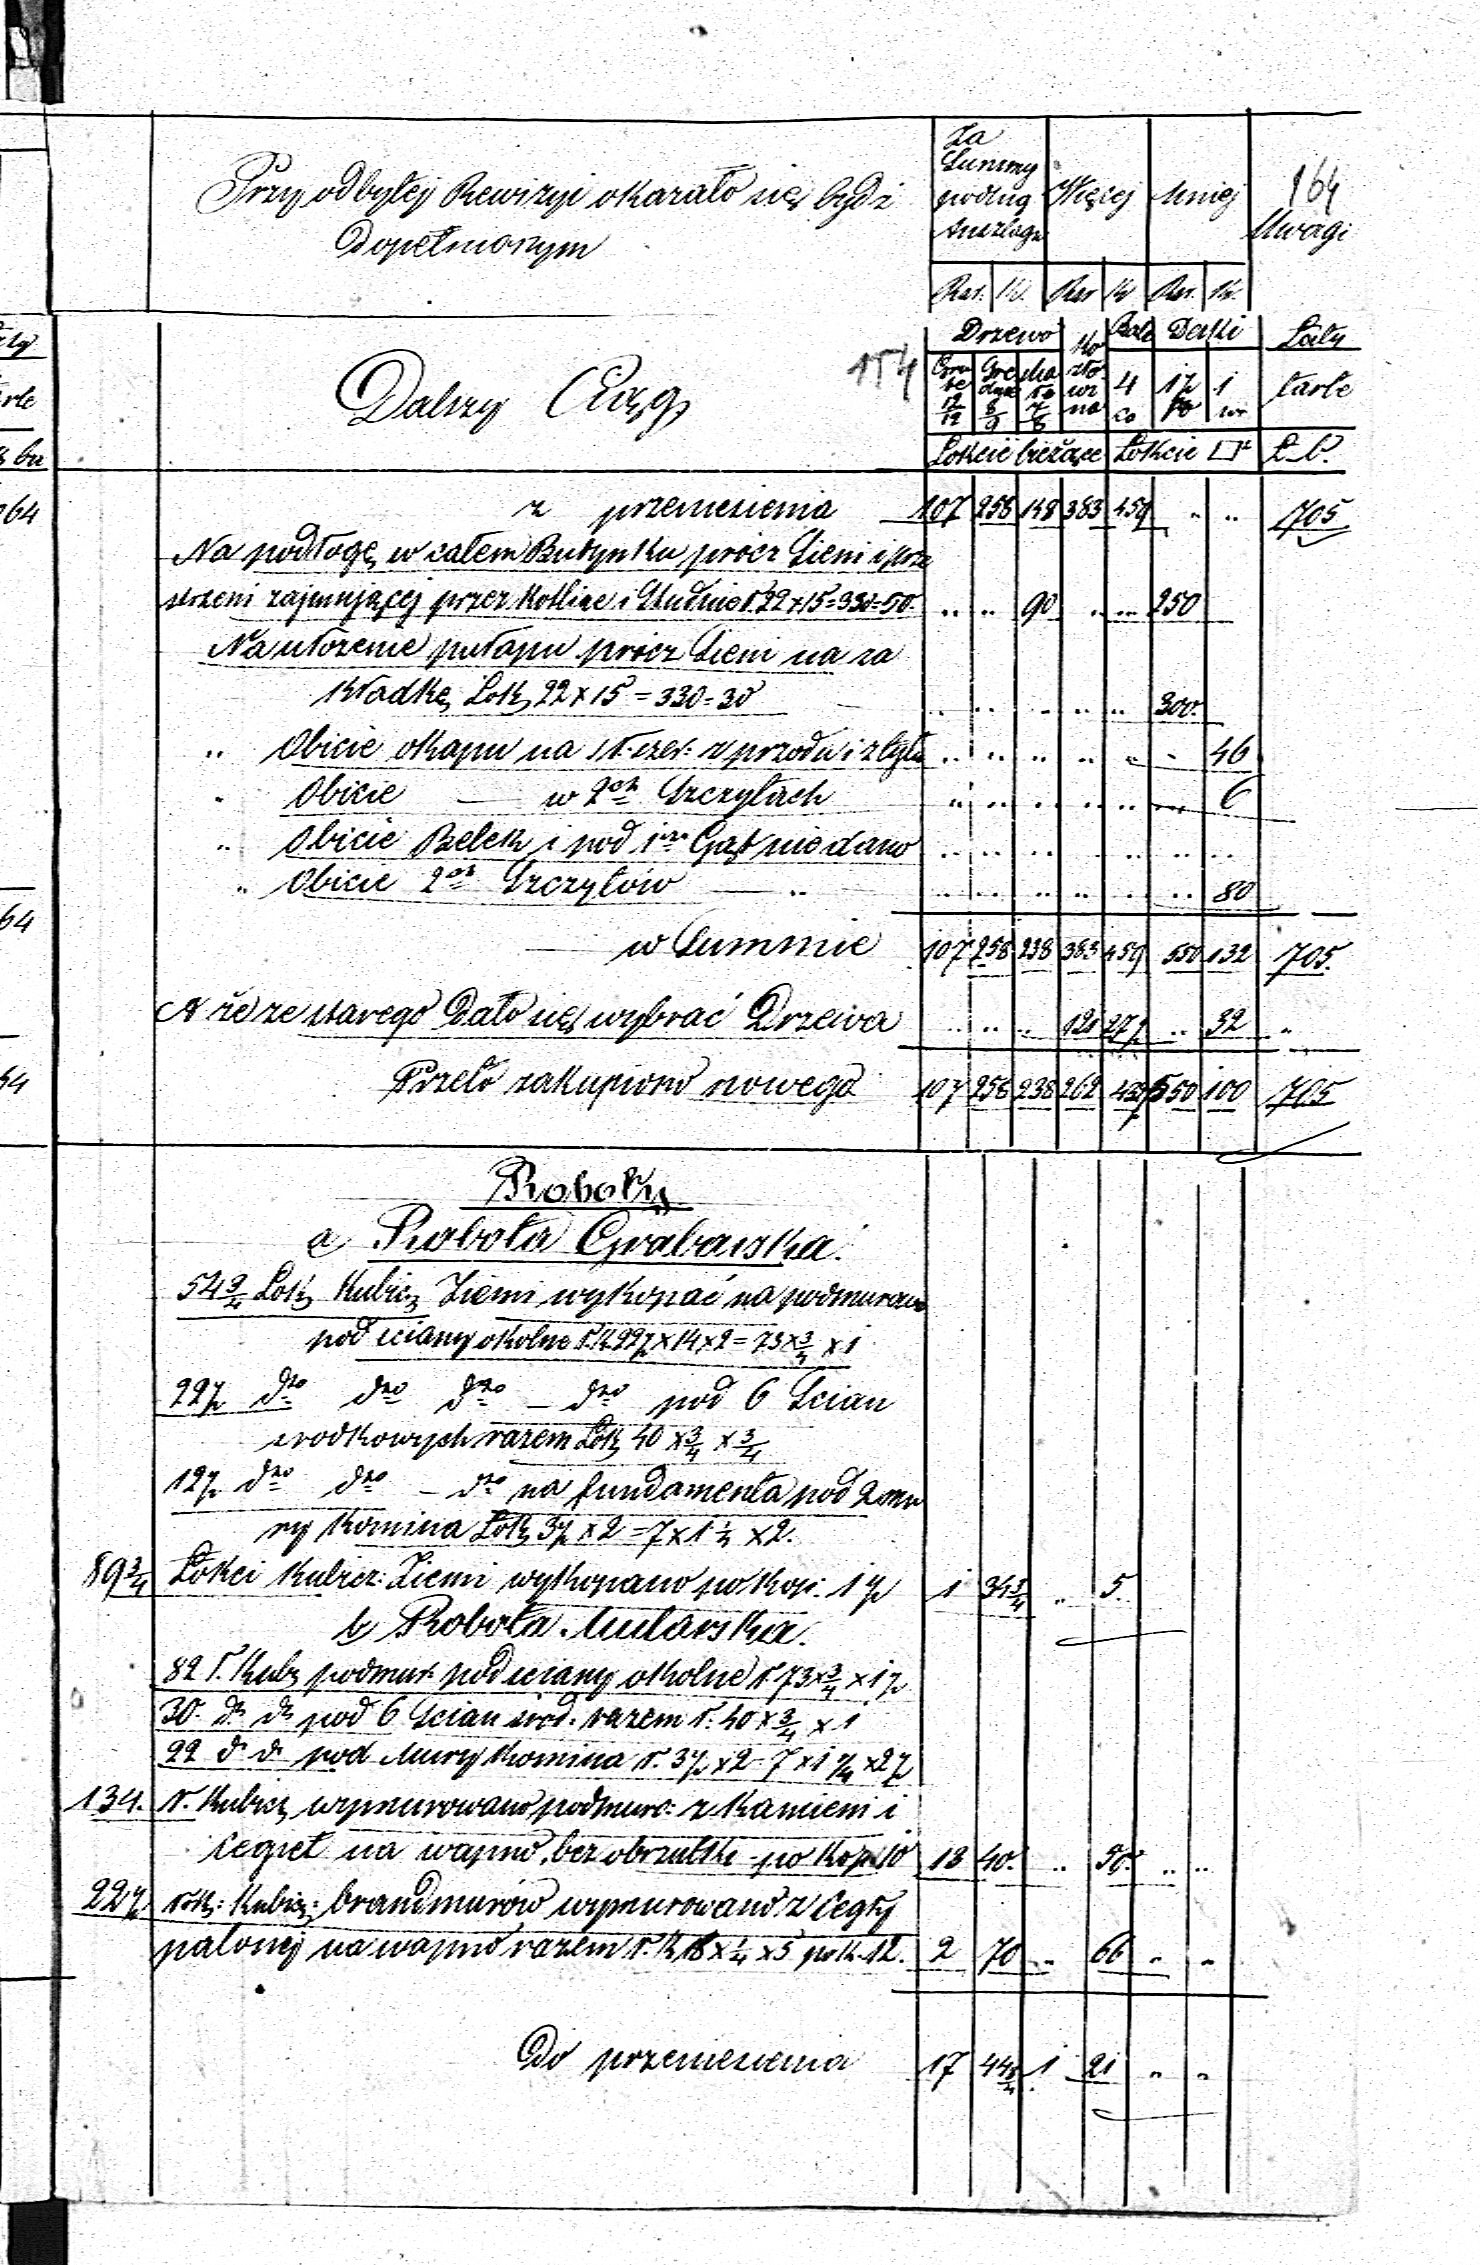 Za
Summy
Przy odbytej Rewizyi okazało się bydź podług Więcej Mniej 164
Dopełnionym Anszlagu Uwagi
Rsr. K. Rsr K Rsr. K.
Drzewo Bale Deski Łaty
Dalszy Ciąg 154 4 1½ 1 tarte
12/12 8/9 7/8
Łokcie bieżące Łokcie □ Ł. b.
z przeniesienia 107 258 148 383 459 .. .. 705
Na podłogę w całem Budynku prócz Sieni i prze
strzeni zajmującej przez Kotlinę i Studnie Ł. 22 x 15 = 330 = 50. .. .. 90 .. .. 250
Na ułożenie pułapu prócz Sieni na za
kładkę Łok. 22 x 15 = 330 = 30 .. .. .. .. .. 300.
" Obicie okapu na 1 Ł. szer: z przodu i z tyłu .. .. .. .. .. .. 46
" Obicie — w 2ch Szczytach .. .. .. .. .. .. 6
" Obicie Belek i pod Gąt nie dano .. .. .. .. .. .. ..
" Obicie 2ch Szczytów — " .. .. .. .. .. .. 80
w Summie 107 258 238 383 459 550 132 705.
A że ze starego Dało się wybrać Drzewa .. .. .. 121 27½ .. 32 ..
Przeto zakupiono nowego 107 258 238 262 550 100 705
Roboty
a Robota Grabarska.
54¾ Łok. Kubicz. Ziemi wykopać na podmurow
pod ściany okolne Ł. K. 22½ x 14 x 2 = 73 x ¾ x 1
22½ dto dto dto – dto pod 6 Scian
srodkowych razem Łok. 40 x ¾ x ¾
12½ dto dto – dto na fundamenta pod 2 mu
ry Komina Łok. 3½ x 2 = 7 x 1 ¼ x 2.
89¾ Łokci Kubicz: Ziemi wykopano po Kop: 1½ 1 34¾ .. 5.
b Robota Mularska.
82 Ł. Kub. podmur: pod sciany okolne Ł. 73 x ¾ x 1½
30. d. d. pod 6 Scian srod. razem Ł. 40 x ¾ x 1
22 d. d. pod Mury Komina Ł. 3½ x 2 = 7 x 1 ¼ x 2½
134. Ł. Kubicz. wymurowano podmuro: z Kamieni i
Cegieł na wapno, bez obrzutki – po Kop. 10 13 40. .. 50. .. ..
22½ Łok: Kubicz: brandmurów wymurowano z Cegły
palonej na wapno razem Ł. K. 18 x ¼ x 5 po K. 12. 2 70 .. 66 .. ..
Do przeniesienia 17 44¾ 1 21 " "